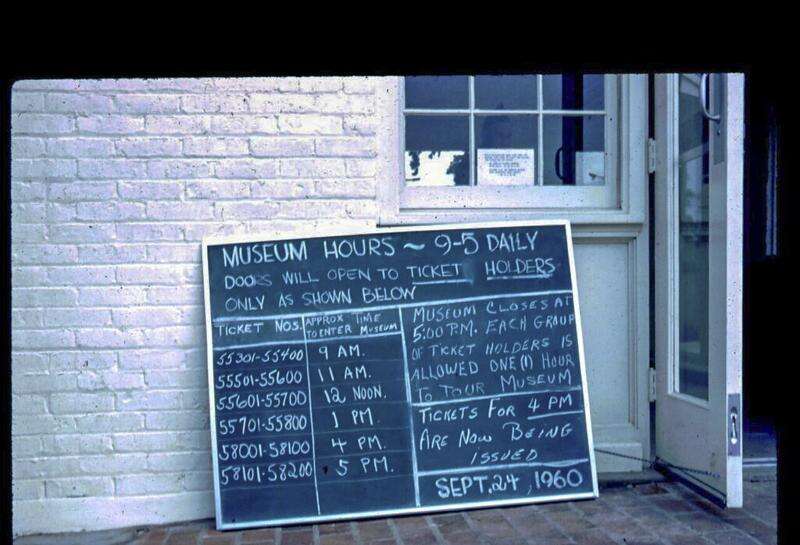 MUSEUM HOURS ~ 9-5 DAILY
DOORS WILL OPEN TO TICKET HOLDERS
ONLY AS SHOWN BELOW
TICKET NOS. APPROX TIME TO ENTER MUSEUM
55301-55400 9 AM.
55501-55600 11 AM.
55601-55700 12 NOON.
55701-55800 1 PM.
58001-58100 4 PM.
58101-58200 5 PM.
MUSEUM CLOSES AT
5:00 P.M. EACH GROUP
OF TICKET HOLDERS IS
ALLOWED ONE (1) HOUR
TO TOUR MUSEUM
TICKETS FOR 4 PM
ARE NOW BEING
ISSUED
SEPT. 24, 1960